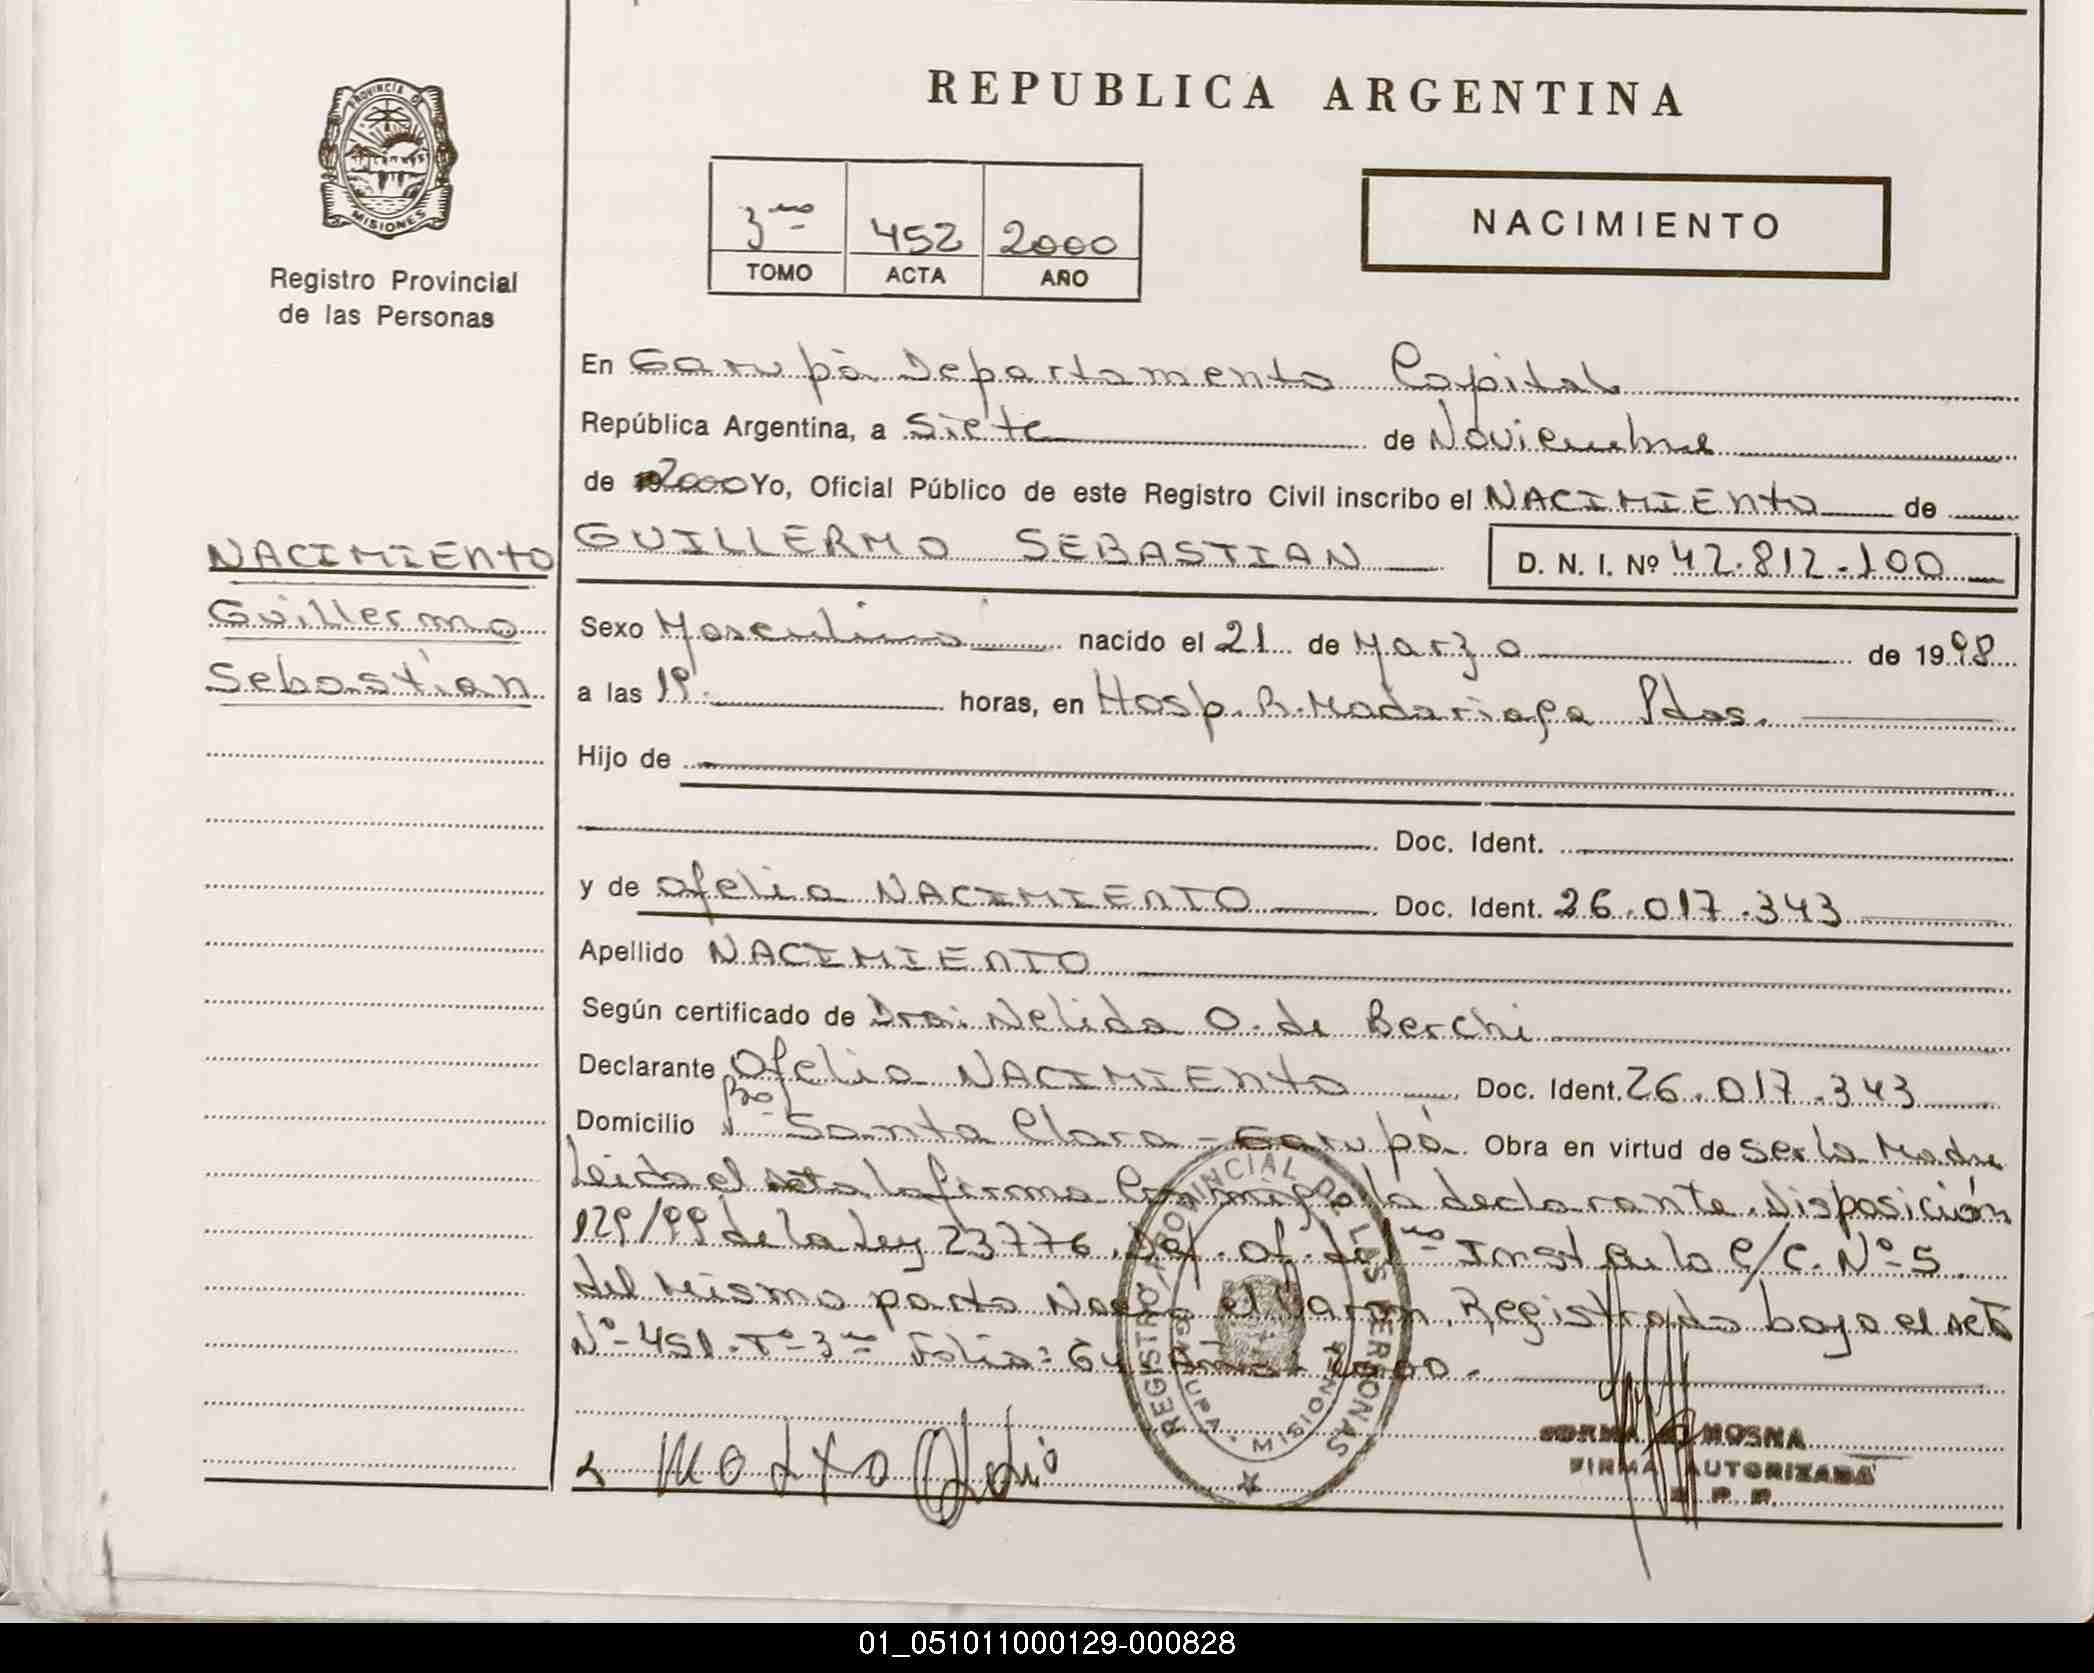 REPUBLICA ARGENTINA
PROVINCIA DE
MISIONES
Registro Provincial
de las Personas
3ro 452 2000
TOMO ACTA AÑO
NACIMIENTO
En Garupá Departamento Capital
República Argentina, a Siete de Noviembre
de 2000 Yo, Oficial Público de este Registro Civil inscribo el NACIMIENTO de
NACIMIENTO
Guillermo
Sebastian
GUILLERMO SEBASTIAN D. N. I. Nº 42.812.100
Sexo Masculino nacido el 21 de Marzo de 1998
a las 19. horas, en Hosp. R. Madariaga Pdas.
Hijo de
Doc. Ident.
y de Ofelia NACIMIENTO Doc. Ident. 26.017.343
Apellido NACIMIENTO
Según certificado de Dra: Nelida O. de Berchi
Declarante Ofelia NACIMIENTO Doc. Ident. 26.017.343
Domicilio Bo Santa Clara - Garupá Obra en virtud de ser la Madre
Leida el acta la firma conmigo la declarante. Disposición
129/99 de la Ley 23776. Def. of. de 1ro Inst de lo C/C. Nº 5
del mismo parto Nacio el Varon. Registrado bajo el acta
Nº 451. Tº 3ro Folio: 64 Año: 2000.
REGISTRO PROVINCIAL DE LAS PERSONAS
MISIONES
MOSNA
FIRMA AUTORIZADA
R. P. P.
01_051011000129-000828